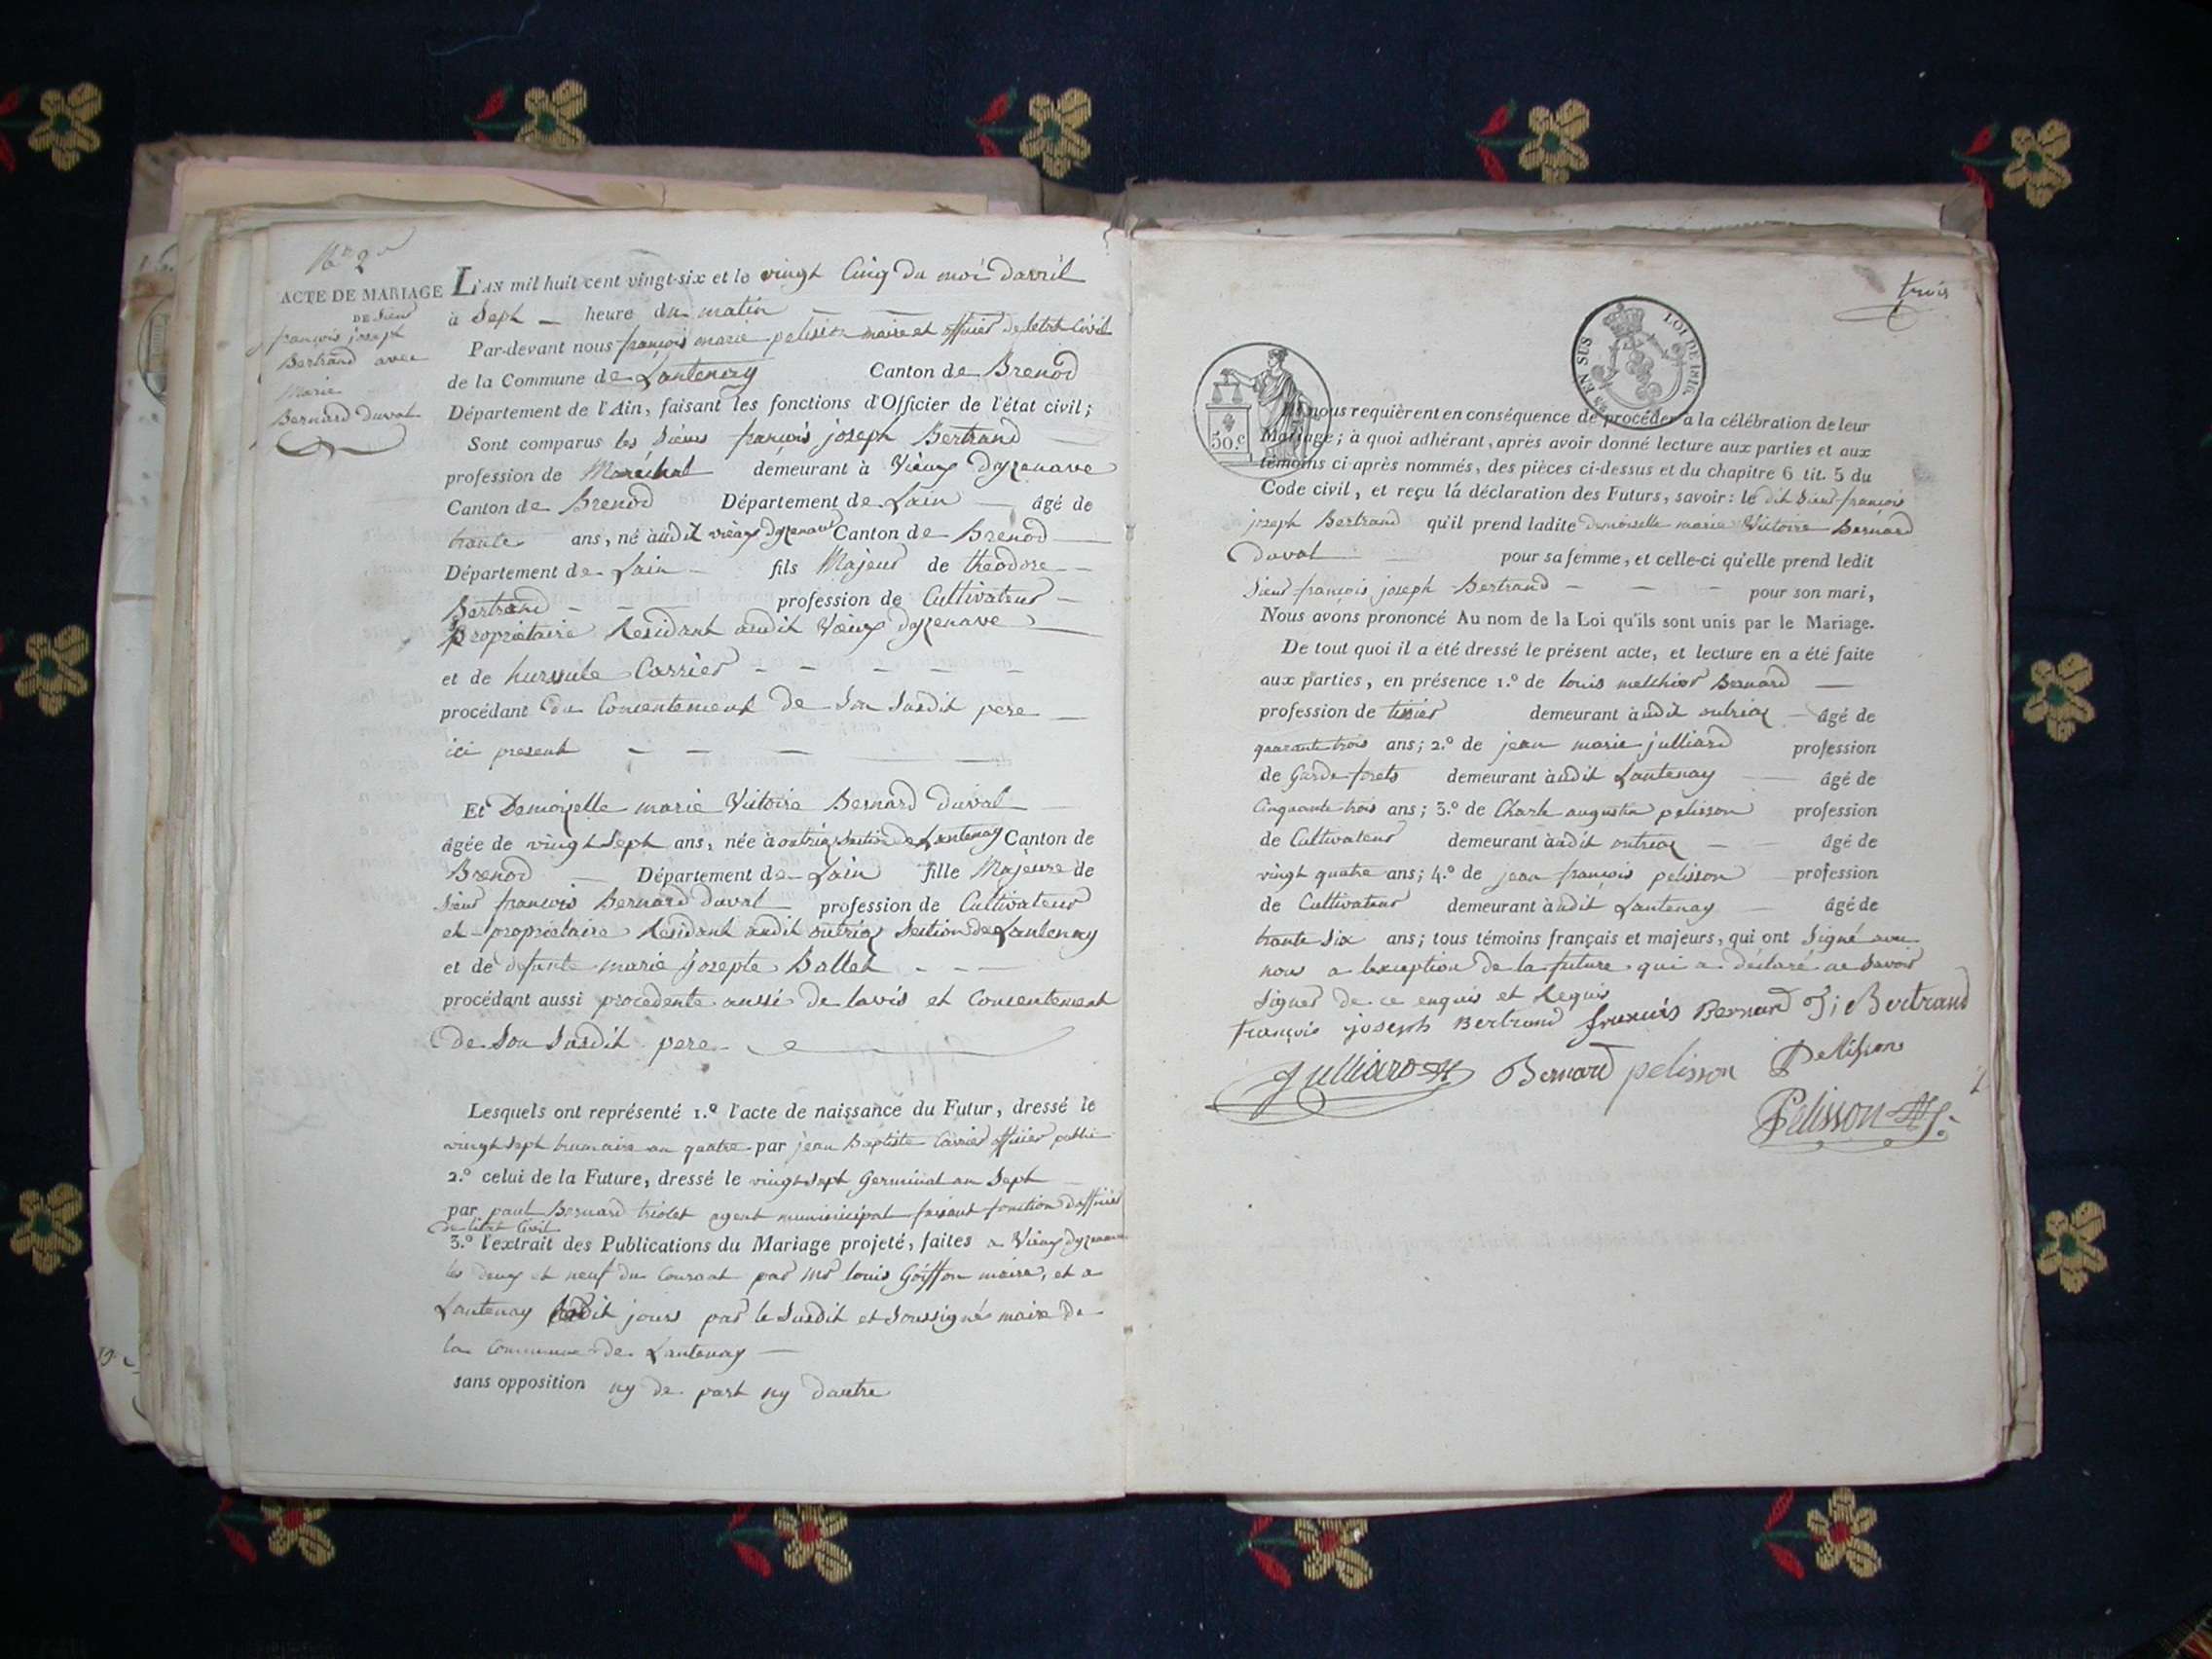 N.º 2
ACTE DE MARIAGE
DE Sieur
françois joseph
Bertrand avec
Marie
Bernard Duval
L'AN mil huit cent vingt-six et le vingt Cinq du moi davril
à Sept heure du matin
Par-devant nous françois marie pelisson maire et officier de letat Civil
de la Commune de Lantenay Canton de Brenod
Département de l'Ain, faisant les fonctions d'Officier de l'état civil;
Sont comparus les Sieurs françois joseph Bertrand
profession de Maréchal demeurant à Vieux dyzenave
Canton de Brenod Département de Lain âgé de
trante ans, né audit vieux dyzenave Canton de Brenod
Département de Lain fils Majeur de théodore
Bertrand profession de Cultivateur
propriétaire Residant audit Vieux dyzenave
et de hursule Carrier
procédant du Concentement de Son Susdit pere
ici present
Et Demoizelle marie Victoire Bernard Duval
âgée de vingt Sept ans, née à outriaz Section de Lantenay Canton de
Brenod Département de Lain fille Majeure de
Sieur françois Bernard Duval profession de Cultivateur
et propriétaire Residant audit outriaz Section de Lantenay
et de defunte marie josepte Ballet
procédant aussi procedente aussi de lavis et Concentement
de Son Susdit pere
Lesquels ont représenté 1.º l'acte de naissance du Futur, dressé le
vingt Sept brumaire an quatre par jean Baptiste Carrier officier public
2.º celui de la Future, dressé le vingt Sept Germinal an Sept
par paul Bernard triolet agent municicipal faisant fonction dofficier
de létat Civil
3.º l'extrait des Publications du Mariage projeté, faites a Vieux dyzenave
les deux et neuf du Courant par Mr louis Goiffon maire, et a
Lantenay dit jours par le Susdit et Soussigné maire de
la Commune de Lantenay
sans opposition ny de part ny dautre
trois
EN SUS
LOI DE 1816.
50.c
Ils nous requièrent en conséquence de procéder à la célébration de leur
Mariage; à quoi adhérant, après avoir donné lecture aux parties et aux
témoins ci-après nommés, des pièces ci-dessus et du chapitre 6 tit. 5 du
Code civil, et reçu la déclaration des Futurs, savoir: le dit Sieur françois
joseph Bertrand qu'il prend ladite demoiselle marie Victoire Bernard
Duval pour sa femme, et celle-ci qu'elle prend ledit
Sieur françois joseph Bertrand pour son mari,
Nous avons prononcé Au nom de la Loi qu'ils sont unis par le Mariage.
De tout quoi il a été dressé le présent acte, et lecture en a été faite
aux parties, en présence 1.º de louis melchior Bernard
profession de tissier demeurant audit outriaz âgé de
quarante trois ans; 2.º de jean marie julliard profession
de Garde forets demeurant audit Lantenay âgé de
Cinquante trois ans; 3.º de Charle augustin pelisson profession
de Cultivateur demeurant audit outriaz âgé de
vingt quatre ans; 4.º de jean françois pelisson profession
de Cultivateur demeurant audit Lantenay âgé de
trante Six ans; tous témoins français et majeurs, qui ont Signé avec
nous a lexception de la future qui a déclaré ne Savoir
Signer de ce enquis et Requis
françois joseph Bertrand françois Bernard T; Bertrand
Julliard Bernard pelisson Pelisson
Pelisson